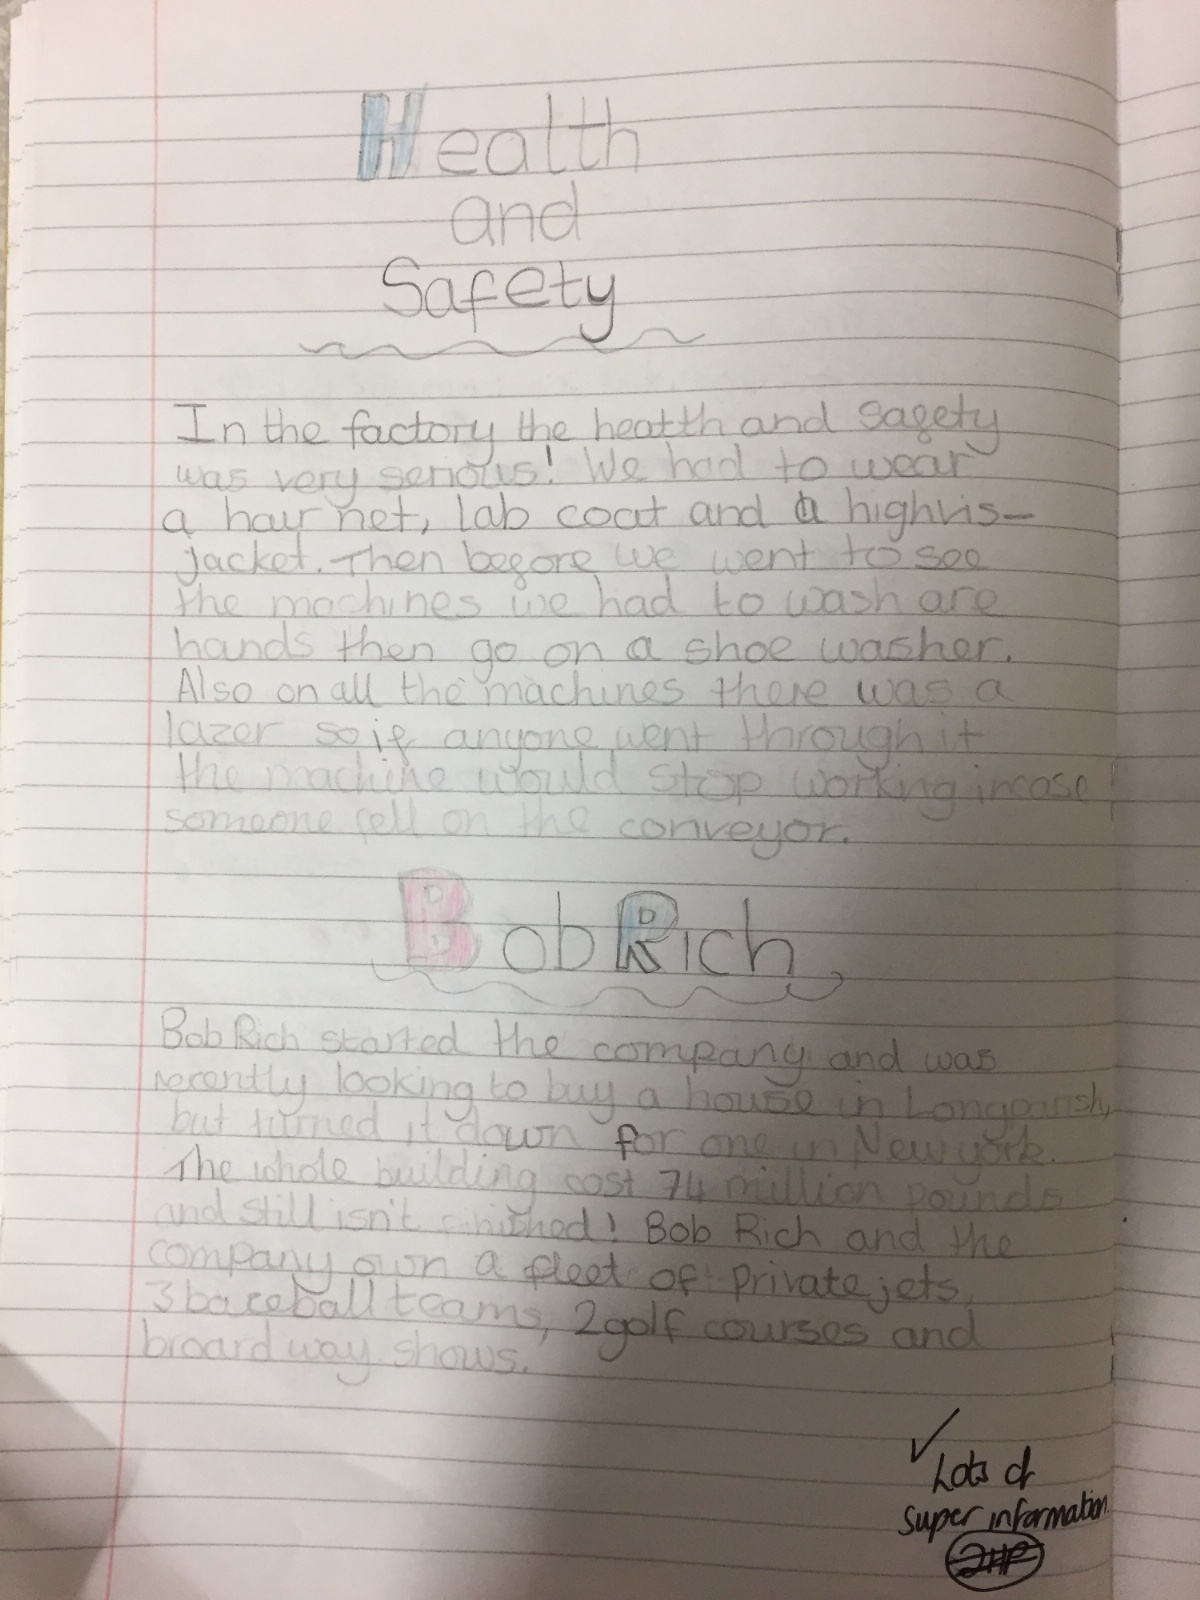 Health
and
Safety
In the factory the heatth and safety
was very serious! We had to wear
a hair net, lab coat and a highvis-
jacket. Then before we went to see
the machines we had to wash are
hands then go on a shoe washer.
Also on all the machines there was a
lazer so if anyone went through it
the machine would stop working incase
someone fell on the conveyor.
Bob Rich
Bob Rich started the company and was
recently looking to buy a house in Longparish,
but turned it down for one in New york.
The whole building cost 74 million pounds
and still isn't finished! Bob Rich and the
company own a fleet of private jets,
3 baceball teams, 2 golf courses and
broard way shows.
✓
Lots of
super information
2HP